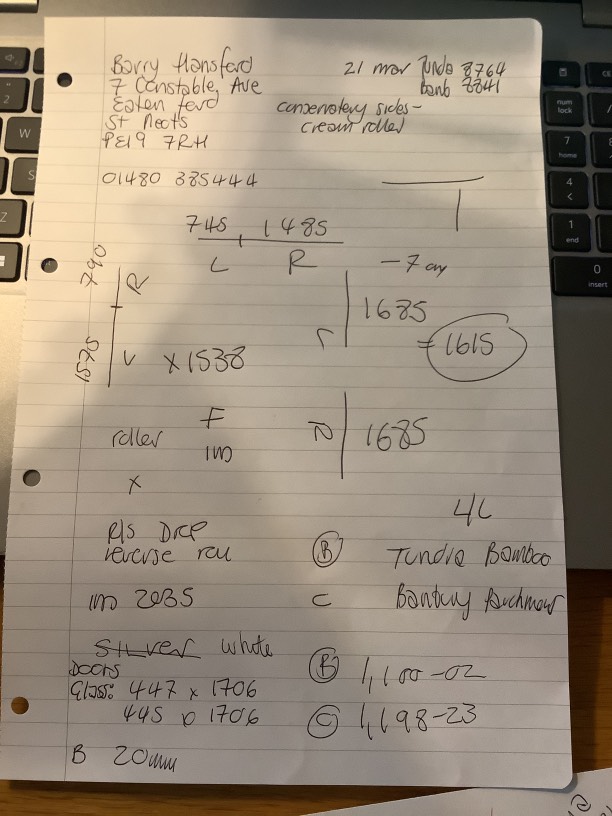 Barry Hansford
7 Constable Ave
Eaton ford
St Neots
PE19 7RH
01480 385444
21 mar Tundra 8764
Banb 8841
conservatory sides -
cream roller
745, 1485
L R
790 R
1525 L
x 1538
- 7 cm
L 1685
= 1615
R 1685
roller F
IMO
x
4L
R/S Drop
reverse roll
IMO 2035
B Tundra Bamboo
C Banbury Parchment
Silver white
Doors
Glass: 447 x 1706
445 D 1706
B 20mm
B 1,100-02
C 1,198-23